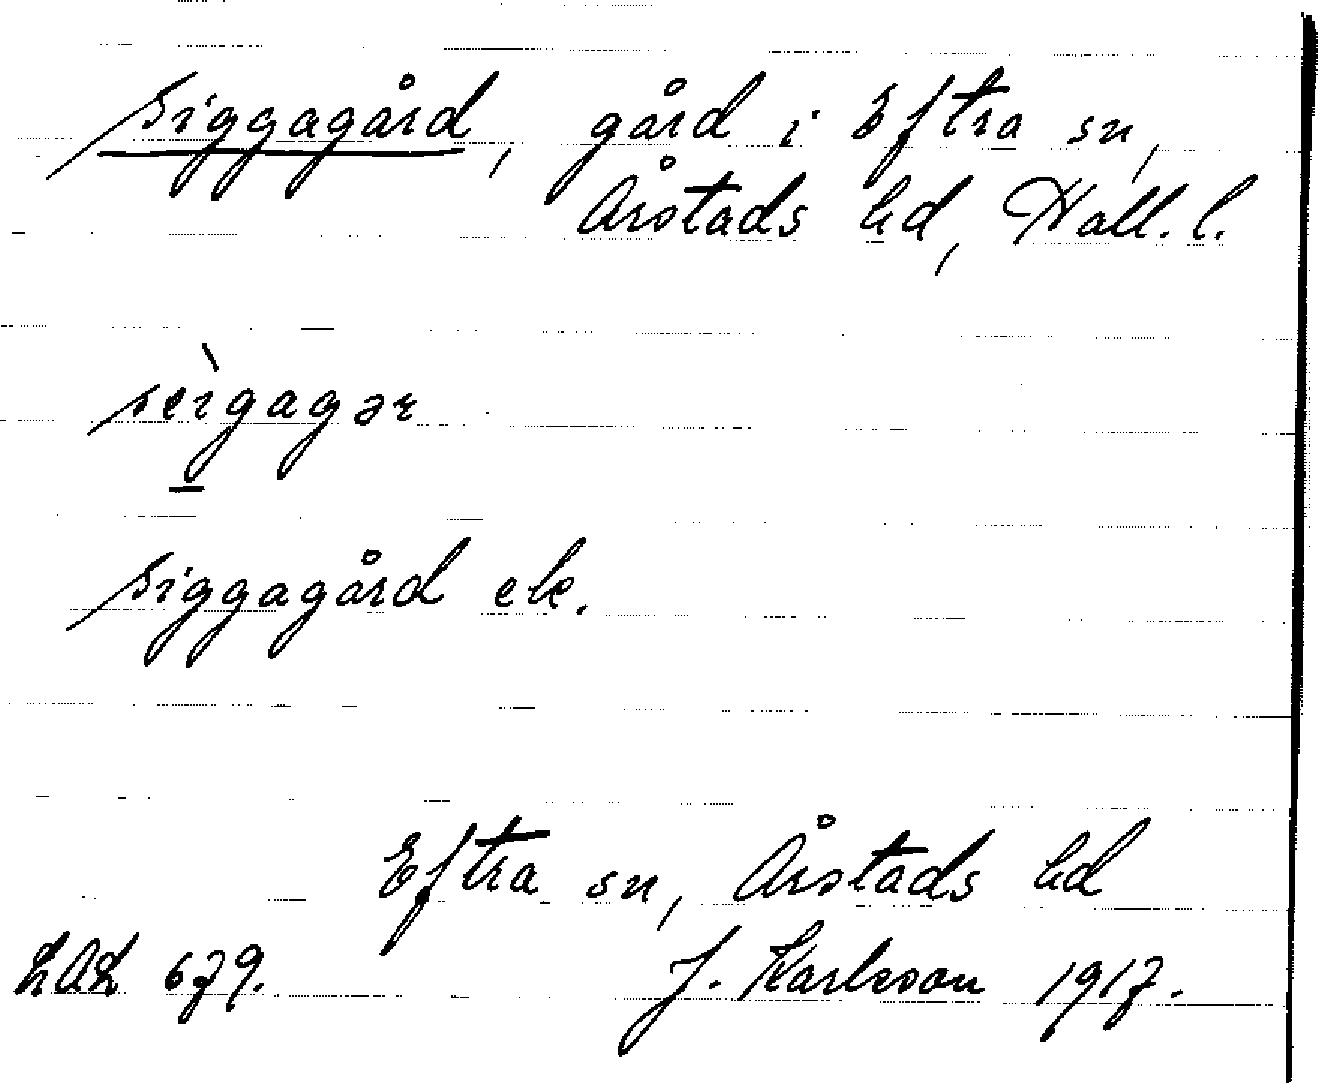 Siggagård, gård i Eftra sn,
Årstads hd, Hall. l.
seìgagər
Siggagård ek.
Eftra sn, Årstads hd
LAL 679. J. Karlsson 1917.